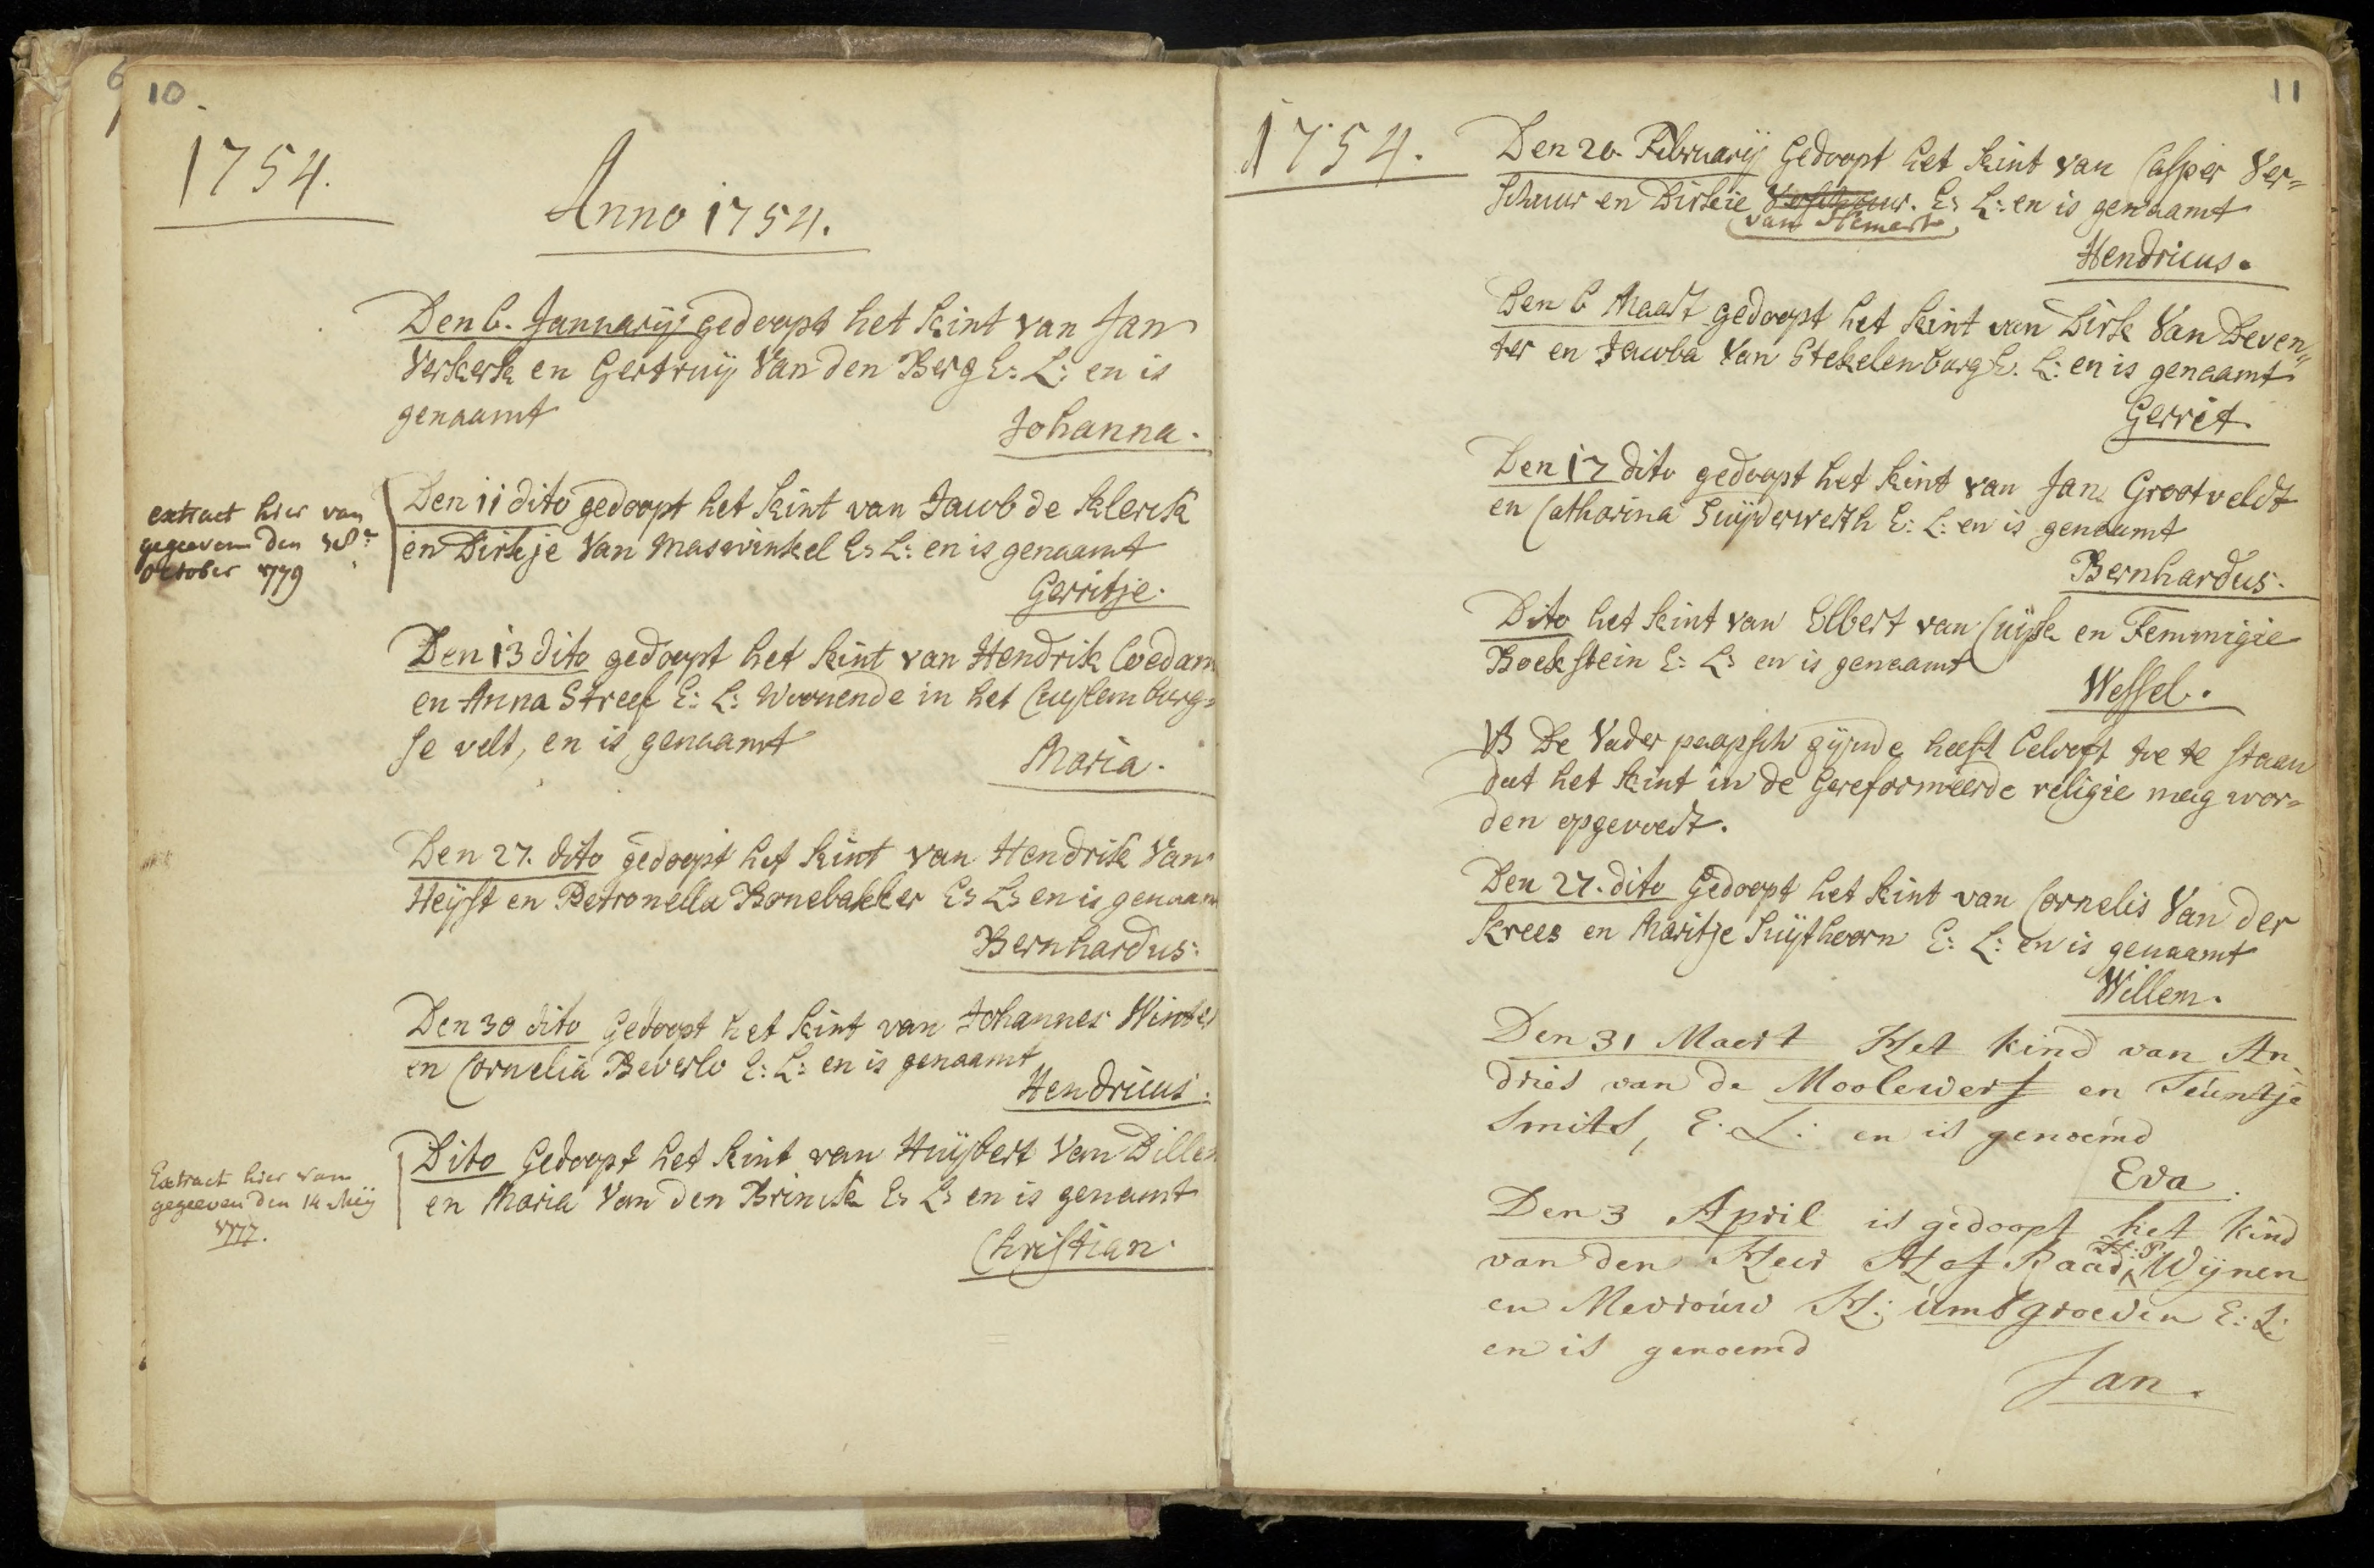 10.
1754.
Anno 1754.
Den 6. Januarij gedoopt het kint van Jan
Verkerk en Gertruij Van den Berg E: L: en is
genaamt
Johanna.
extract hier van
gegeeven den 18e:
October 1779
Den 11 dito gedoopt het kint van Jacob de Klerck
en Dirkje Van Maswinkel E: L: en is genaamt
Gerritje.
Den 13 dito gedoopt het kint van Hendrik Coedam
en Anna Streef E: L: Woonende in het Cuylemburg=
se velt, en is genaamt
Maria.
Den 27. dito gedoopt het kint van Hendrik Van
Heyst en Petronella Bonebakker E: L: en is genaam
Bernhardus:
Den 30 dito Gedoopt het kint van Johannes Winter
en Cornelia Beverlo E: L: en is genaamt
Hendricus.
Extract hier van
gegeeven den 14 Meij
1777.
Dito Gedoopt het kint van Huijbert Van Dillen
en Maria Van den Brinck E: L: en is genaamt
Christian.
11
1754.
Den 20. February Gedoopt het kint van Casper Ver=
schuur en Dirkie Verschuur. E: L: en is genaamt
van Hemert
Hendricus.
Den 6 Maart gedoopt het kint van Dirk Van Deven"
ter en Jacoba Van Stekelenburg E. L: en is genaamt
Gerrit.
Den 17 dito gedoopt het kint van Jan Grootveldt
en Catharina Suyderwerth E: L: en is genaamt
Bernhardus.
Dito het kint van Elbert van Cuyk en Femmigie
Boekstein E: L: en is genaamt
Wessel.
NB De Vader paapsch zijnde heeft belooft toe te staan
dat het kint in de Gereformeerde religie mag wor=
den opgevoedt.
Den 27. dito Gedoopt het kint van Cornelis Van der
Krees en Maritje Suythoorn E: L: en is genaamt
Willem.
Den 31 Maert Het kind van An
dries van de Moolewerf en Teuntje
Smits, E: L: en is genoemd
Eva.
Den 3 April is gedoopt het kind
van den Heer Hof Raad H: P: Wijnen
en Mevrouw H: umbgroeven E: L:
en is genoemd
Jan.